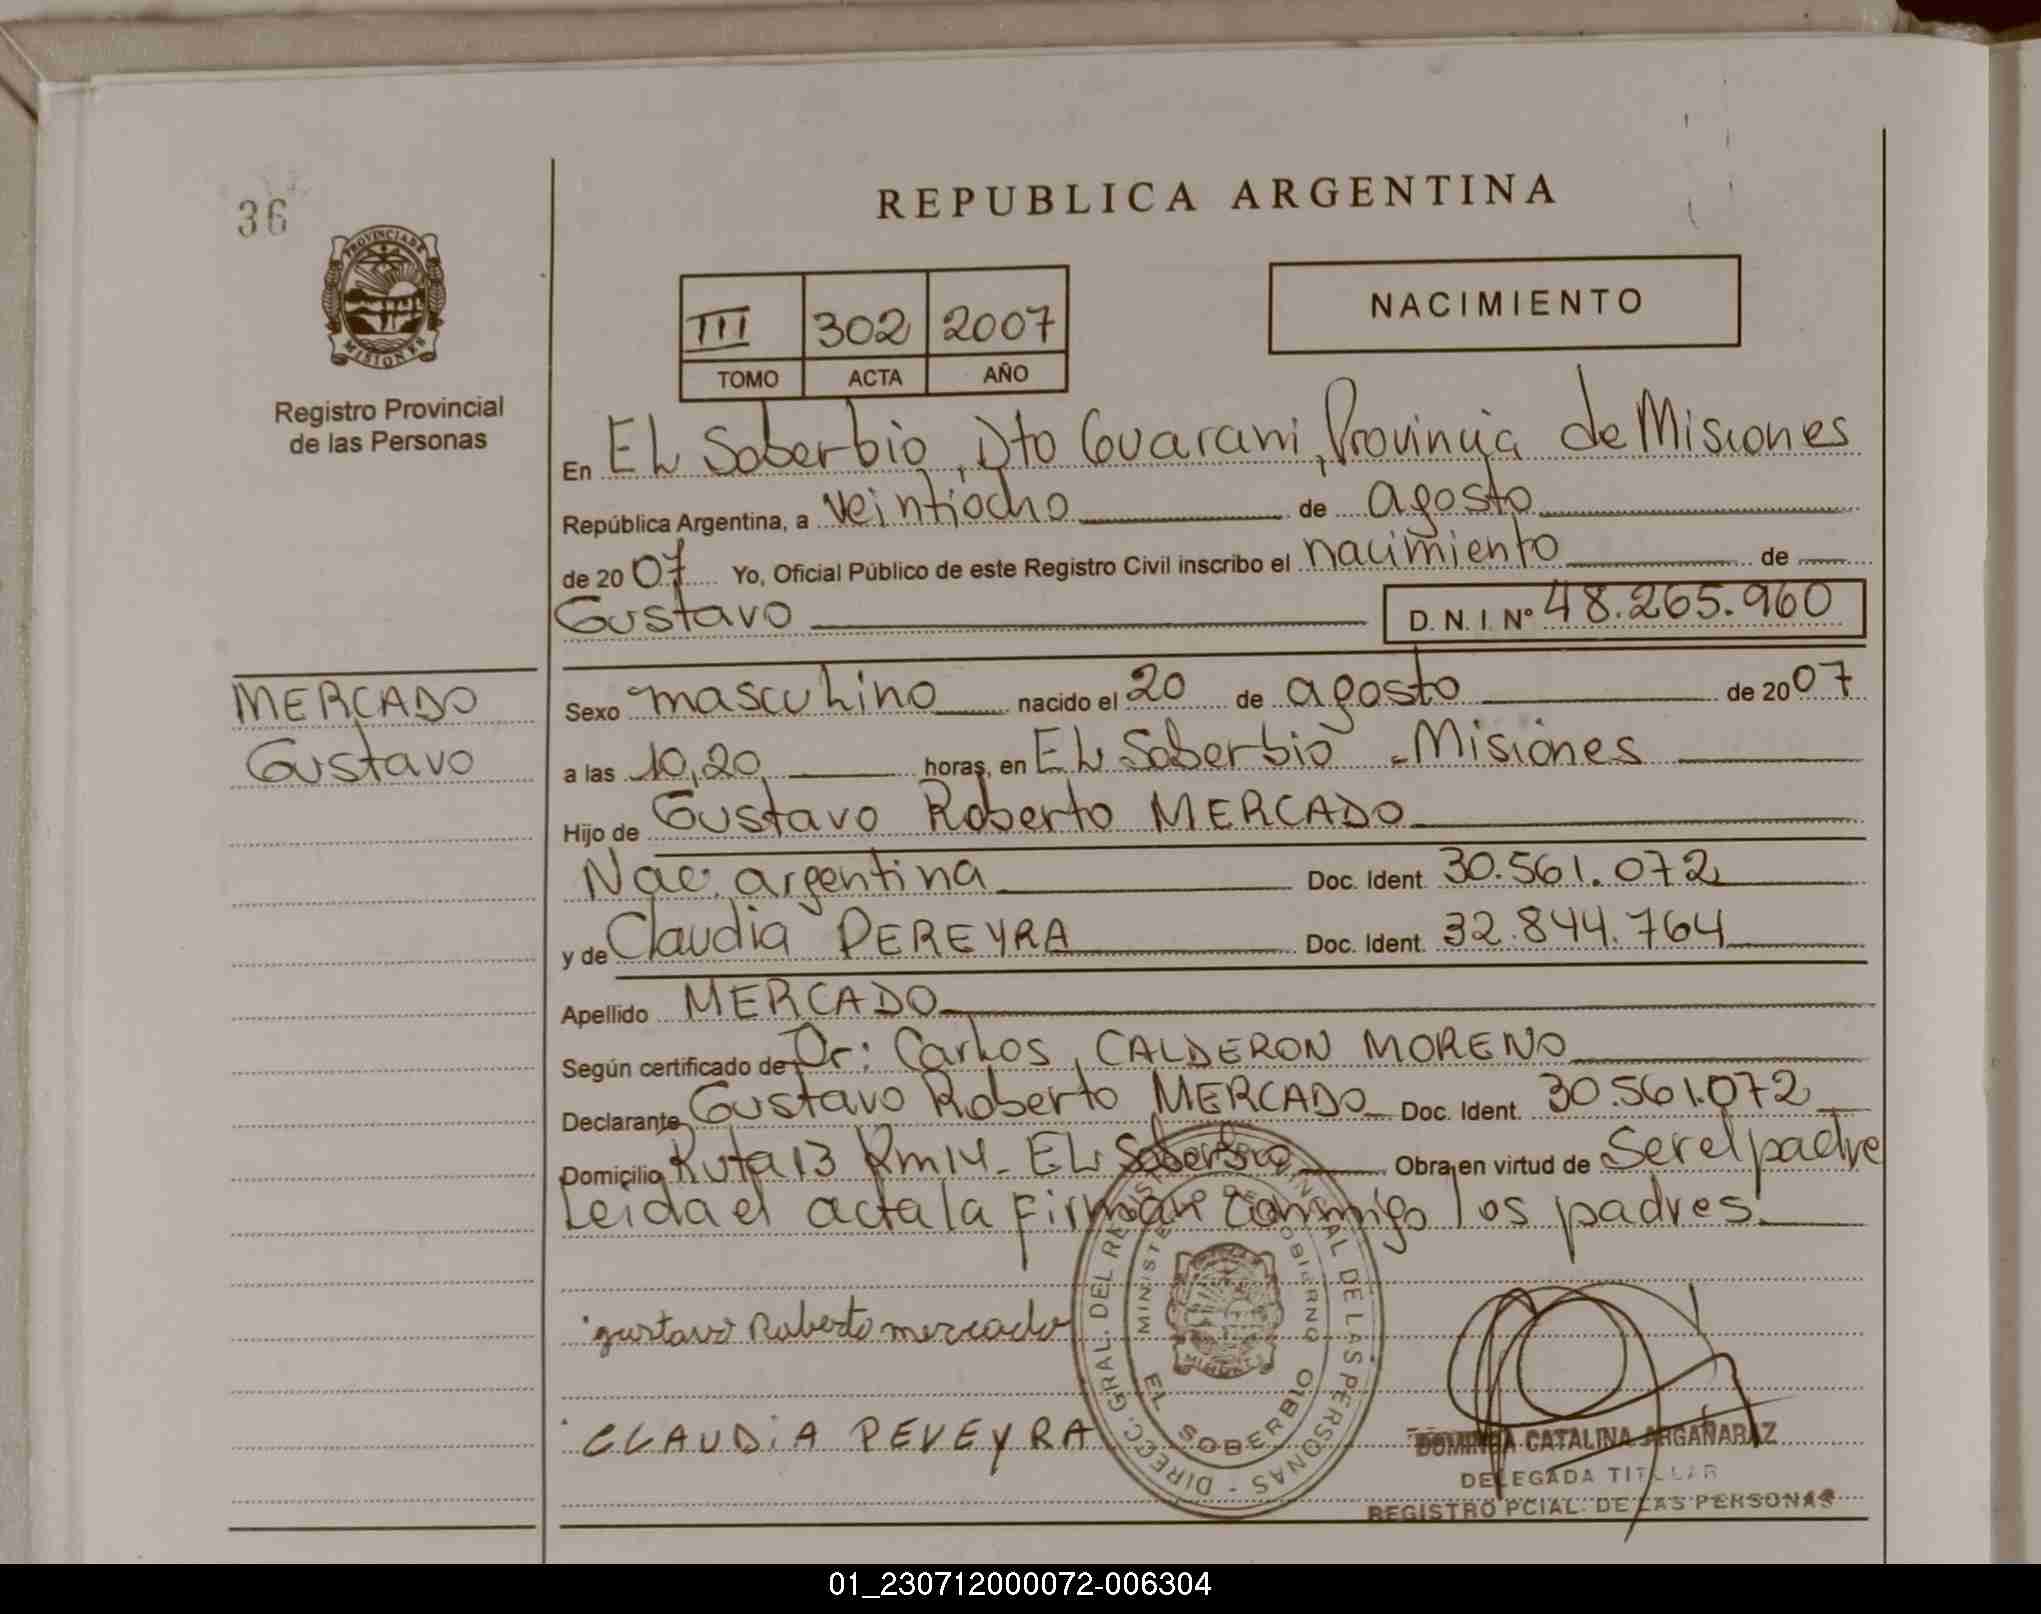 36
REPUBLICA ARGENTINA
PROVINCIA DE MISIONES
Registro Provincial
de las Personas
III 302 2007
TOMO ACTA AÑO
NACIMIENTO
En El Soberbio, Dto Guarani, Provincia de Misiones
República Argentina, a veintiocho de agosto
de 2007 Yo, Oficial Público de este Registro Civil inscribo el nacimiento de
Gustavo D.N.I. Nº 48.265.960
MERCADO
Gustavo
Sexo masculino nacido el 20 de agosto de 2007
a las 10,20 horas, en El Soberbio - Misiones
Hijo de Gustavo Roberto MERCADO
Nac. argentina Doc. Ident. 30.561.072
y de Claudia PEREYRA Doc. Ident. 32.844.764
Apellido MERCADO
Según certificado de Dr: Carlos, CALDERON MORENO
Declarante Gustavo Roberto MERCADO Doc. Ident. 30.561.072
Domicilio Ruta 13 Km 14 - El Soberbio Obra en virtud de Ser el padre
Leida el acta la firman conmigo los padres.
gustavo Roberto mercado
CLAUDiA PEVEYRA
DIRECC. GRAL. DEL REGISTRO PROVINCIAL DE LAS PERSONAS -
MINISTERIO DE GOBIERNO
EL SOBERBIO
DOMINGA CATALINA ARGAÑARAZ
DELEGADA TITULAR
REGISTRO PCIAL. DE LAS PERSONAS
01_230712000072-006304